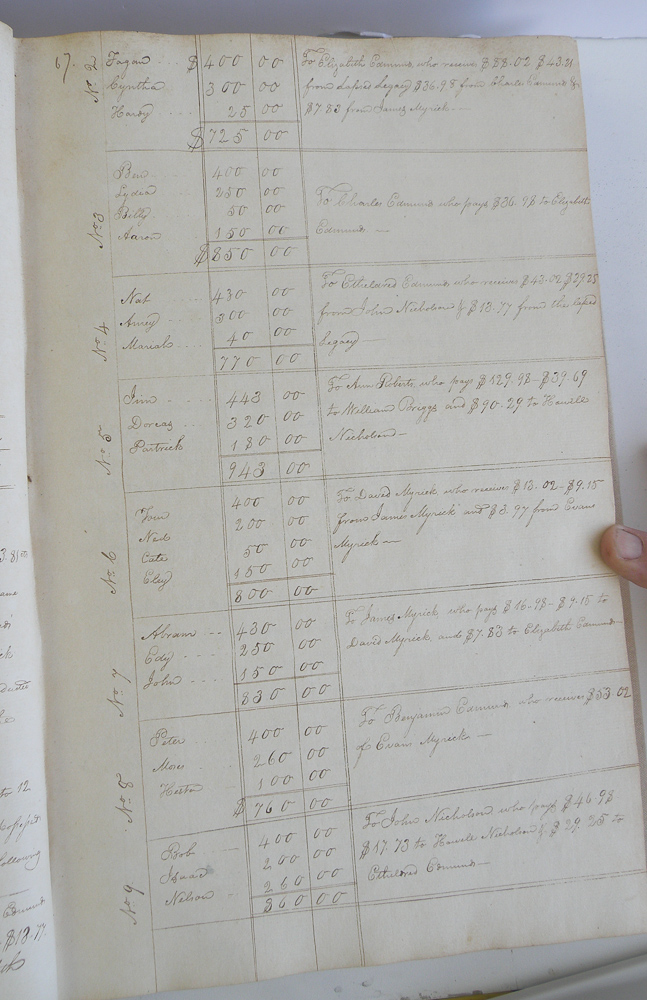 67.
No. 2
Fagan $400 00 To Elizabeth Edmunds who receives $88.02 $43.21
Cynthia 300 00 from Lapsed Legacy $36.98 from Charles Edmunds &
Hardy 25 00 $7.83 from James Myrick.
$725 00
No. 3
Ben 400 00
Lydia 250 00 To Charles Edmunds who pays $36.98 to Elizabeth
Billy 50 00 Edmunds
Aaron 150 00
$850 00
No. 4
Nat 430 00 To Etheldred Edmunds who receives $43.02 $29.25
300 00 from John Nicholson & $13.77 from the lapsed
Mariah 40 00 Legacy
770 00
No. 5
Jim 443 00 To Ann Roberts who pays $129.98 - $39.69
Dorcas 320 00 to William Briggs and $90.29 to Howell
Partrick 180 00 Nicholson
943 00
No. 6
Tom 400 00 To David Myrick who receives $13.02 - $9.15
Ned 200 00 from James Myrick and $3.97 from Evans
Cate 50 00 Myrick
150 00
800 00
No. 7
Abram 430 00 To James Myrick who pays $16.98 - $9.15 to
Edy 250 00 David Myrick and $7.83 to Elizabeth Edmunds
John 150 00
830 00
No. 8
Peter 400 00 To Benjamin Edmunds who receives $53.02
Moses 260 00 of Evans Myrick
100 00
$760 00
No. 9
Bob 400 00 To John Nicholson who pays $46.98
Isaac 200 00 $17.73 to Howell Nicholson & $29.25 to
Nelson 260 00 Etheldred Edmunds
860 00
to 12
following
Edmunds
$13.77